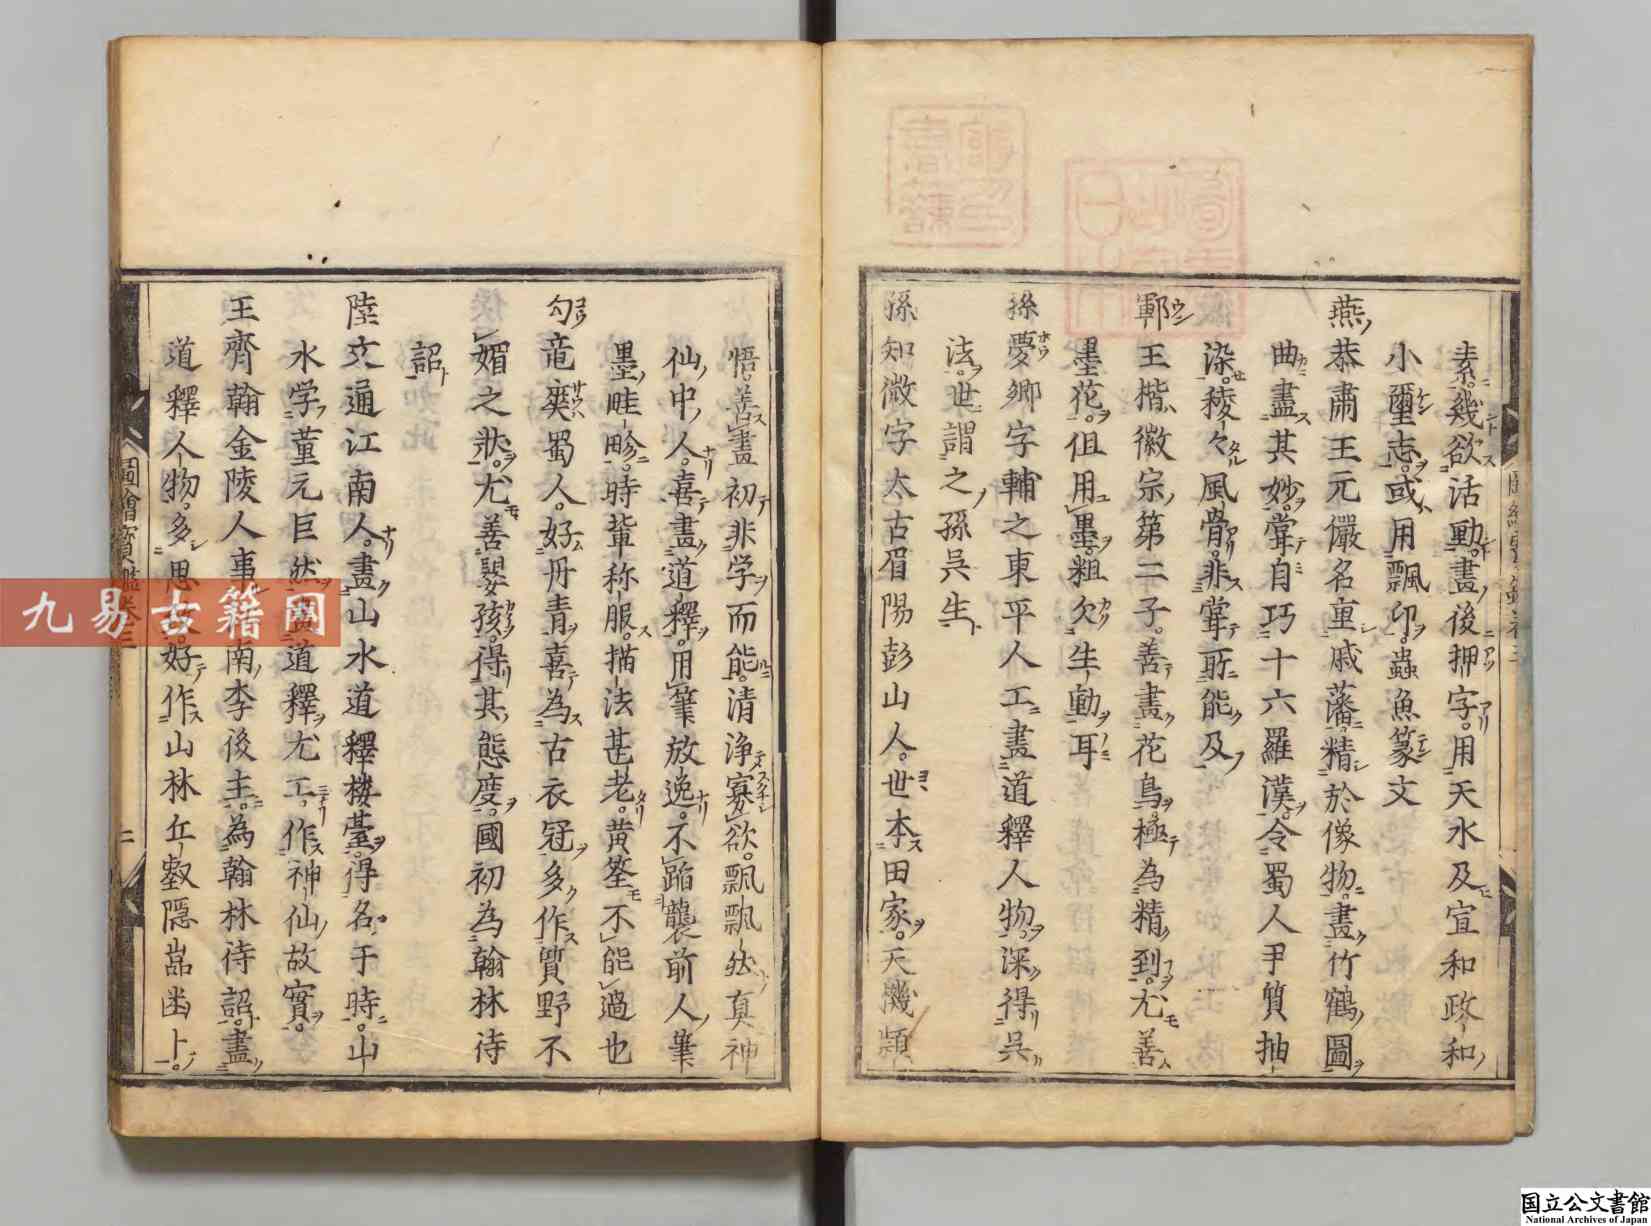 素。幾欲活動。畫後押字。用天水及宣和政和
小璽志。或用瓢印。蟲魚篆文
燕恭肅王元儼名重戚藩。精於像物。畫竹鶴圖
曲盡其妙。甞自巧十六羅漢。令蜀人尹質抽
染。稜々風骨。非甞所能及
鄆王楷徽宗第二子。善畫花鳥。極為精到。尤善
墨花。但用墨。粗欠生動耳
孫夢卿字輔之東平人工畫道釋人物。深得吳
法。世謂之孫吳生
孫知微字太古眉陽彭山人。世本田家。天機穎
悟。善畫初非学而能。清浄寡欲。飄飄然真神
仙中人。喜畫道釋。用筆放逸。不蹈襲前人筆
墨畦畛。時輩称服。描法甚老。黄筌不能過也
勾竜爽蜀人。好丹青喜為古衣冠多作質野不
媚之状。尤善嬰孩。得其態度。國初為翰林待
詔
陸文通江南人。畫山水道釋楼臺。得名于時。山
水学董元巨然。道釋尤工。作神仙故實。
王齊翰金陵人事南李後主。為翰林待詔。畫
道釋人物。多思好作山林丘壑隠嵓幽卜。
圖繪寶鑑卷三
二
九易古籍網
国立公文書館
National Archives of Japan